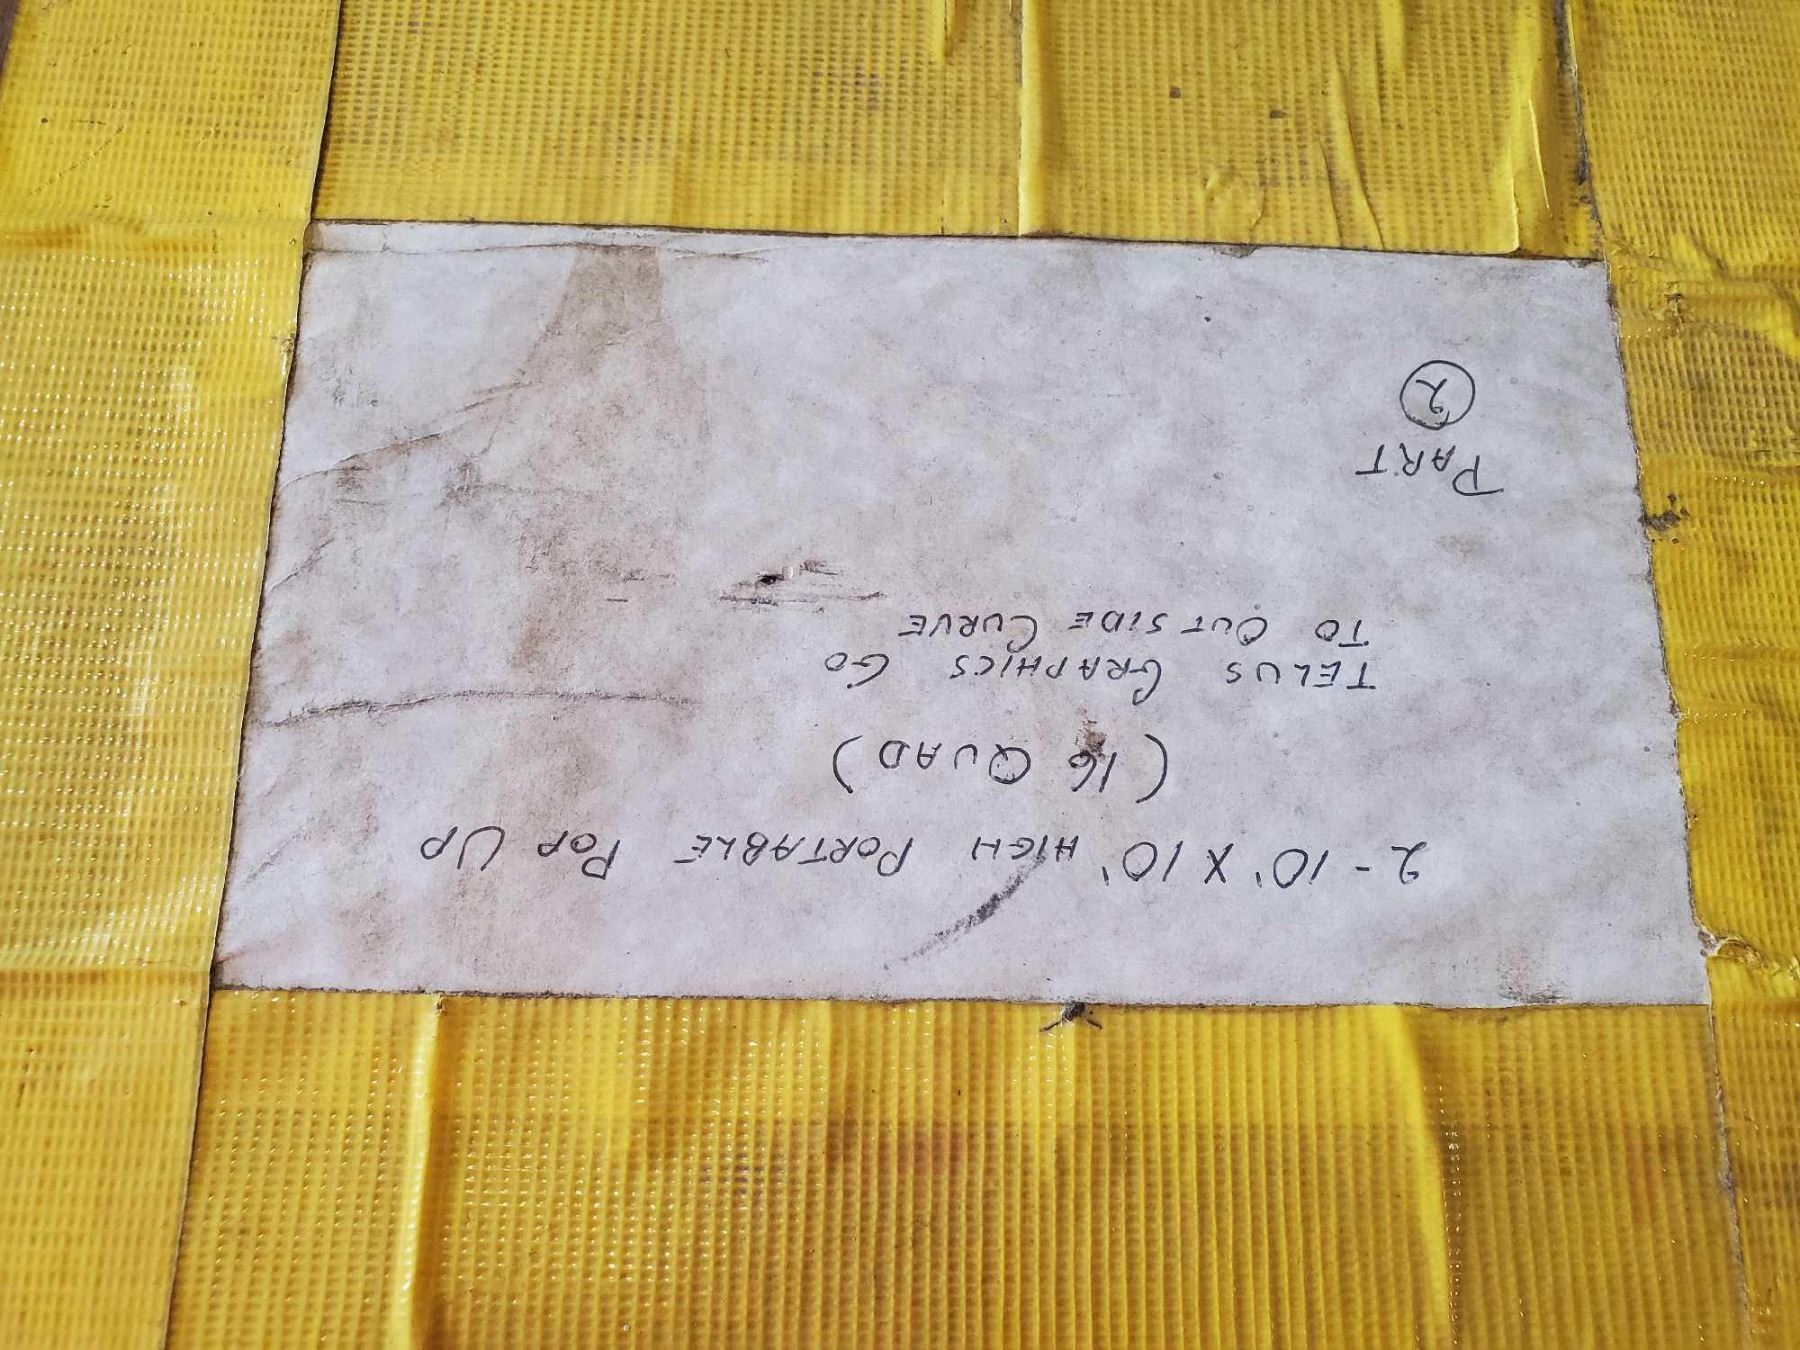 2 - 10' X 10' HIGH PORTABLE POP UP
(16 QUAD)
TELUS GRAPHICS GO
TO OUTSIDE CURVE
PART
2